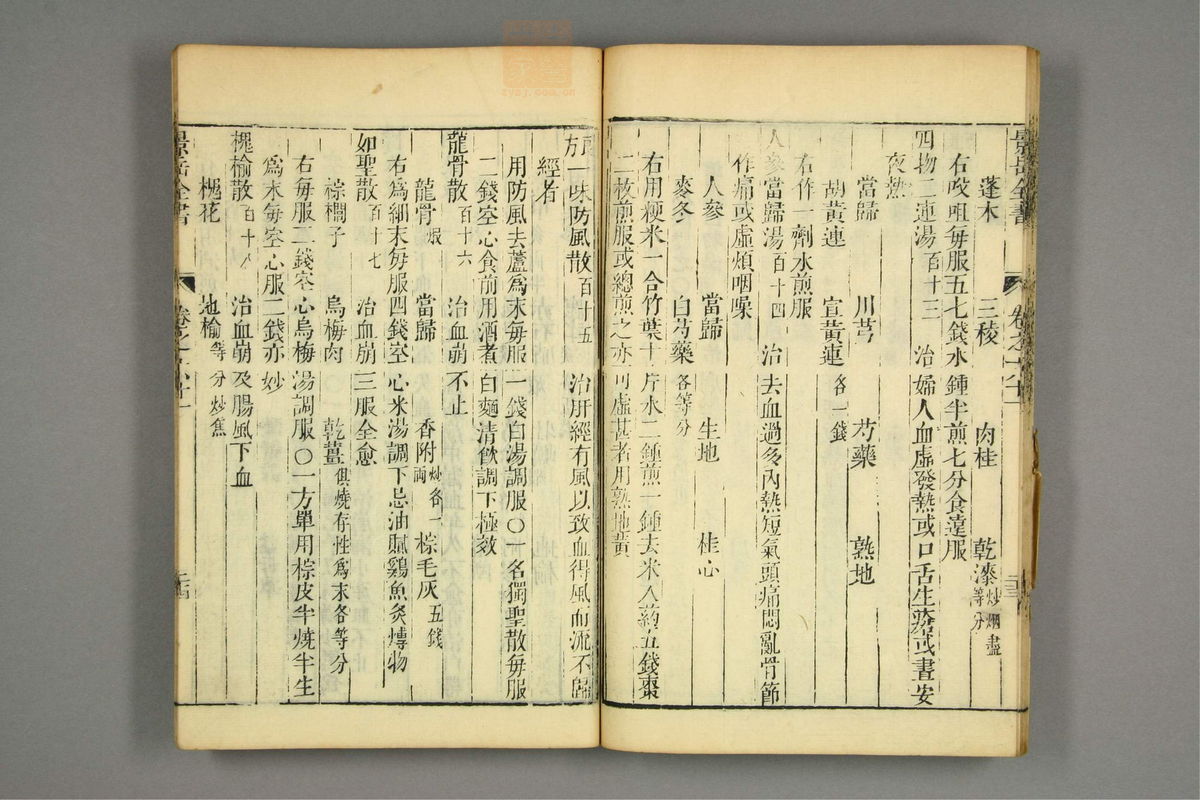 景岳全書
蓬木　三稜　肉桂　乾漆炒煙盡等分
右㕮咀每服五七錢水一鍾半煎七分食遠服
四物二連湯百十三　治婦人血虛發熱或口舌生瘡或晝安
夜熱
當歸　川芎　芍藥　熟地
胡黃連　宣黃連各一錢
右作一劑水煎服
人參當歸湯百十四　治去血過多內熱短氣頭痛悶亂骨節
作痛或虛煩咽噪
人參　當歸　生地　桂心
麥冬　白芍藥各等分
右用粳米一合竹葉十斤水二鍾煎一鍾去米入药五錢棗
二枚煎服或總煎之亦可虛甚者用熟地黃
一味防風散百十五　治肝經有風以致血得風而流不歸
經者
用防風去蘆為末每服一錢白湯調服〇一名獨聖散每服
二錢空心食前用酒煮白麵清飲調下極效
龍骨散百十六　治血崩不止
龍骨煅　當歸　香附炒各一兩　棕毛灰五錢
右為細末每服四錢空心米湯調下忌油膩鷄魚炙煿物
如聖散百十七　治血崩三服全愈
棕櫚子　烏梅肉　乾薑俱燒存性為末各等分
右每服二錢空心烏梅湯調服〇一方單用棕皮半燒半生
為末每空心服二錢亦妙
槐榆散百十八　治血崩及腸風下血
槐花　地榆等分炒焦
景岳全書